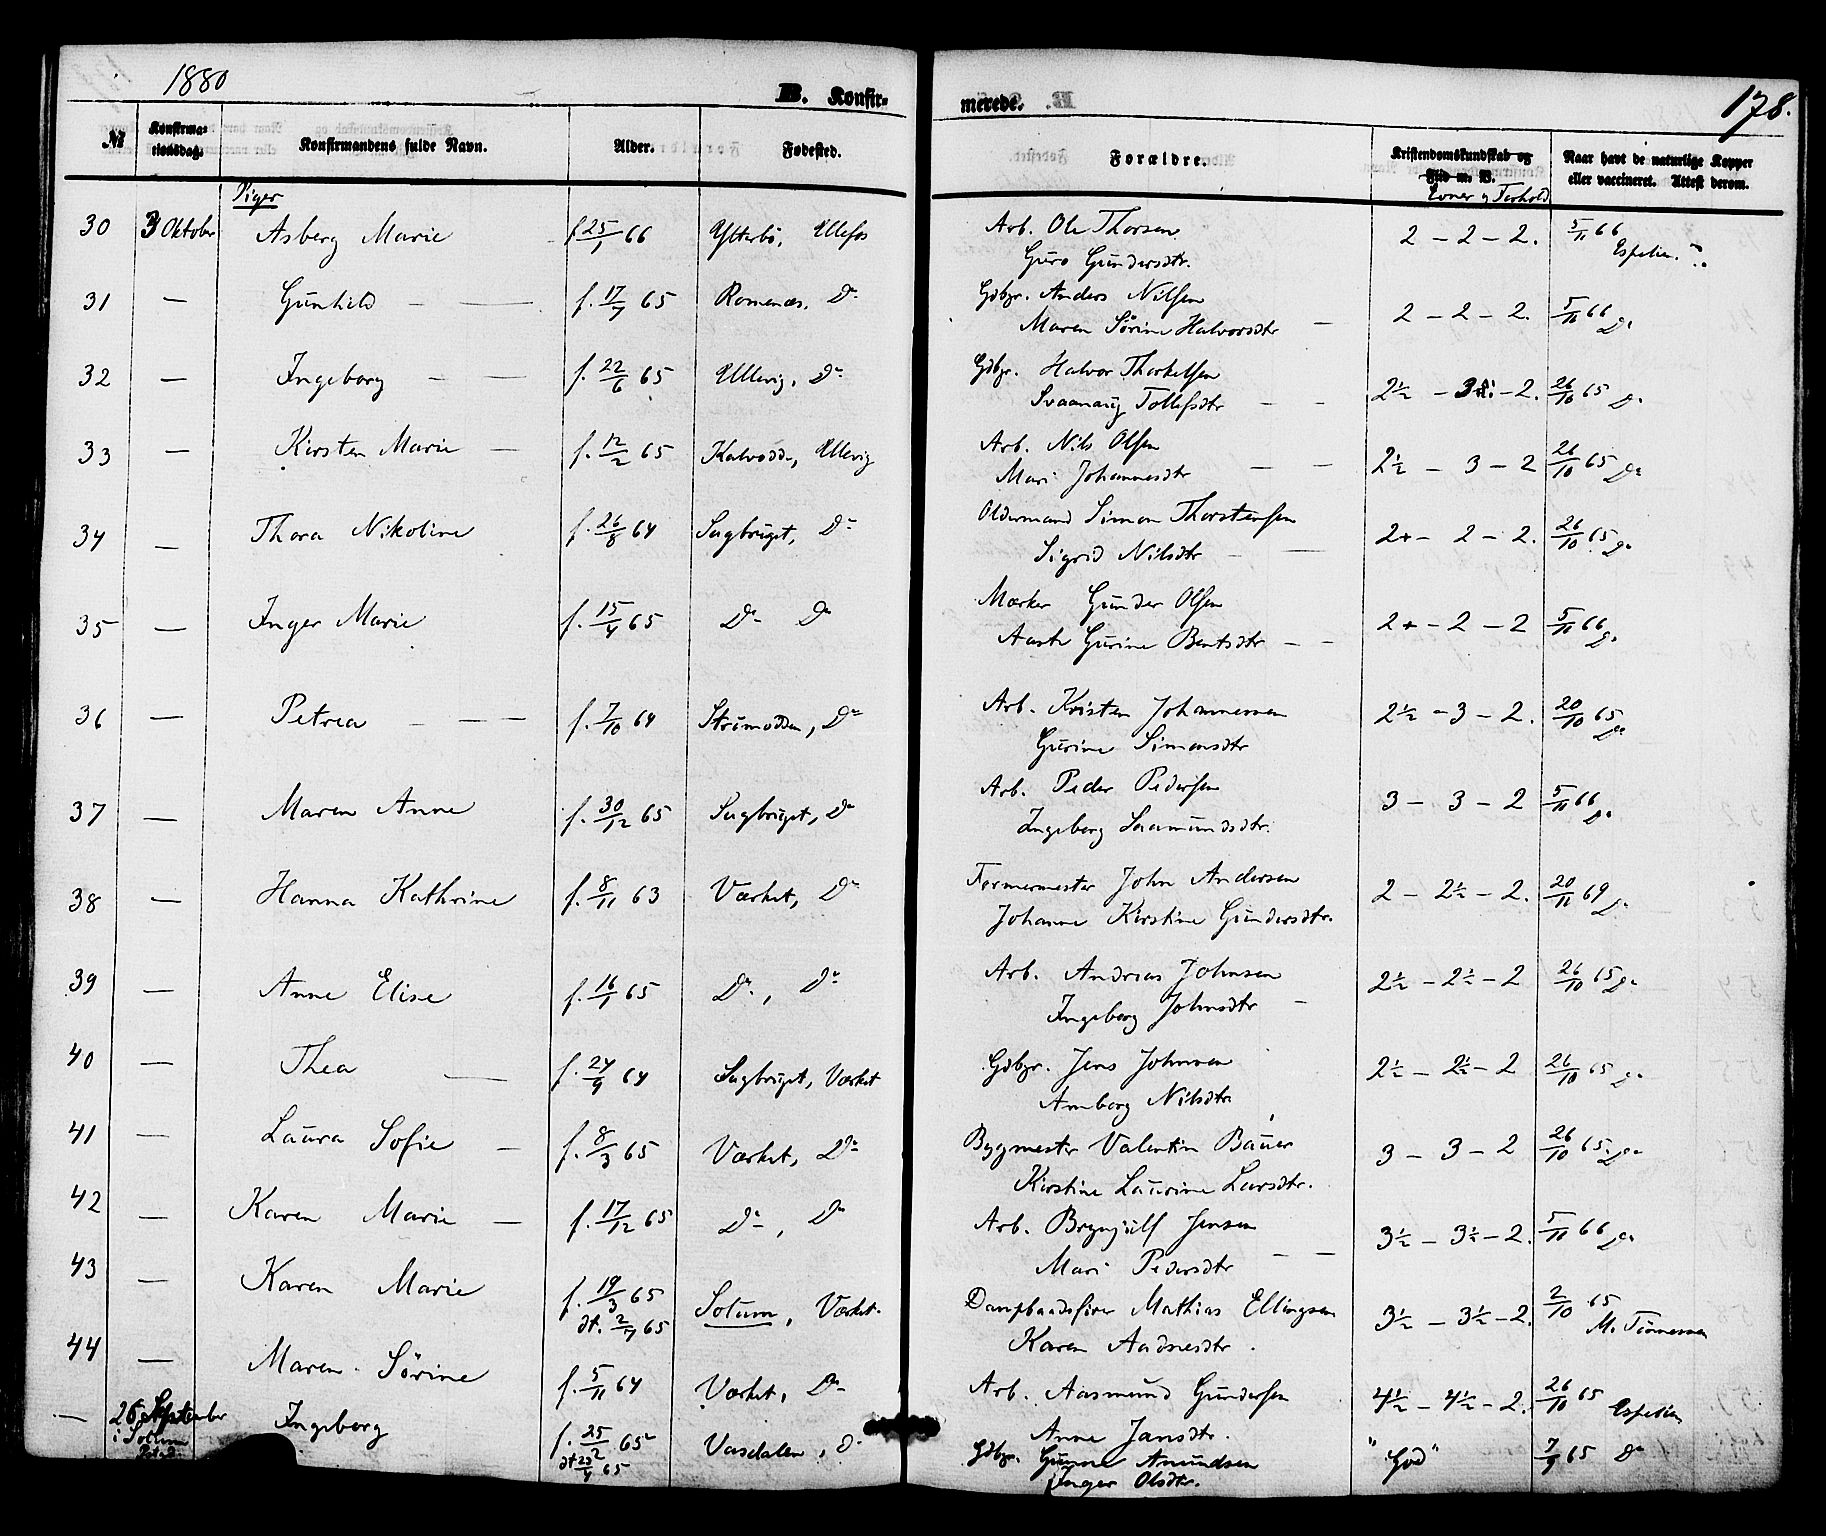 1880
B. Konfir-
merede.
178.
№
Konfirma-
tionsdag.
Konfirmandens fulde Navn.
Alder.
Fødested.
Forældre.
Kristendomskundskab og
Flid m. V.
Evner og Forhold
Naar havt de naturlige Kopper
eller vaccineret. Attest derom.
Piger
30 3 Oktober Asberg Marie f 25/1 66 Ytterbö, Ulefos Arb. Ole Thorsen 2 - 2 - 2. 5/11 66
Guro Gundersdtr. Espelien
31 — Gunhild f. 17/7 65 Romenæs, Do Gdbgr. Anders Nilsen 2 - 2 - 2. 5/11 66 Do
Maren Sörine Halvorsdtr —
32 — Ingeborg f. 22/6 65 Ullevig, Do Gdbgr. Halvor Thorkelsen 2½ - 3 - 2. 26/10 65 Do
Svaanaug Tollefsdtr
33 — Kirsten Marie — f. 12/2 65 Kalvodd., Ullevig Arb. Nils Olsen 2½ - 3 - 2 26/10 65 Do
Mari Johannesdtr
34 — Thora Nikoline f. 26/8 64 Sagbruget, Do Oldermand Simon Thorstensen 2+ - 2 - 2. 26/10 65 Do
Sigrid Nilsdtr
35 — Inger Marie f. 15/4 65 Do Do Mærker Gunder Olsen 2+ - 2 - 2 5/11 66 Do
Aaste Gurine Bentsdtr — —
36 — Petrea f. 7/10 64 Strumodden, Do Arb. Kristen Johannessen 2½ - 3 - 2. 20/10 65 Do
Gurine Simonsdtr
37 — Maren Anne f. 30/12 65 Sagbruget, Do Arb. Peder Pedersen 3 - 3 - 2 5/11 66 Do
Ingeborg Saamundsdtr.
38 — Hanna Kathrine f. 8/11 63 Værket, Do Formermester John Andersen 2 - 2½ - 2. 20/11 69 Do
Johanne Kirstine Gundersdtr.
39 — Anne Elise f. 16/1 65 Do, Do Arb. Andreas Johnsen 2½ - 2½ - 2 26/10 65 Do
Ingeborg Johnsdtr —
40 — Thea — f. 24/9 64 Sagbruget, Værket Gdbgr. Jens Johnsen 2½ - 2½ - 2 26/10 65 Do
Amborg Nilsdtr
41 — Laura Sofie — f. 8/3 65 Værket, Do Bygmester Valentin Bauer 3 - 3 - 2 26/10 65 Do
Kirstine Laurine Larsdtr.
42 — Karen Marie — f. 17/12 65 Do, Do Arb. Brynjulf Jensen 3½ - 3½ - 2. 5/11 66 Do
Mari Pedersdtr
43 — Karen Marie f. 19/3 65 Solum, Værket. Dampbaadsfører Mathias Ellingsen 3½ - 3½ - 2. 2/10 65
dt. 2/7 65 Karen Aadnesdtr. M. Tönnessen
44 — Maren Sörine f. 5/11 64 Værket, Do Arb. Aasmund Gundersen 4½ - 4½ - 2. 26/10 65 Espelien
Anne Jansdtr.
— 26 September Ingeborg f. 25/2 65 Vasdalen, Do Gdbgr. Gunne Amundsen "God" 7/9 65 Do
i Solum dt 23/4 65 Inger Olsdtr.